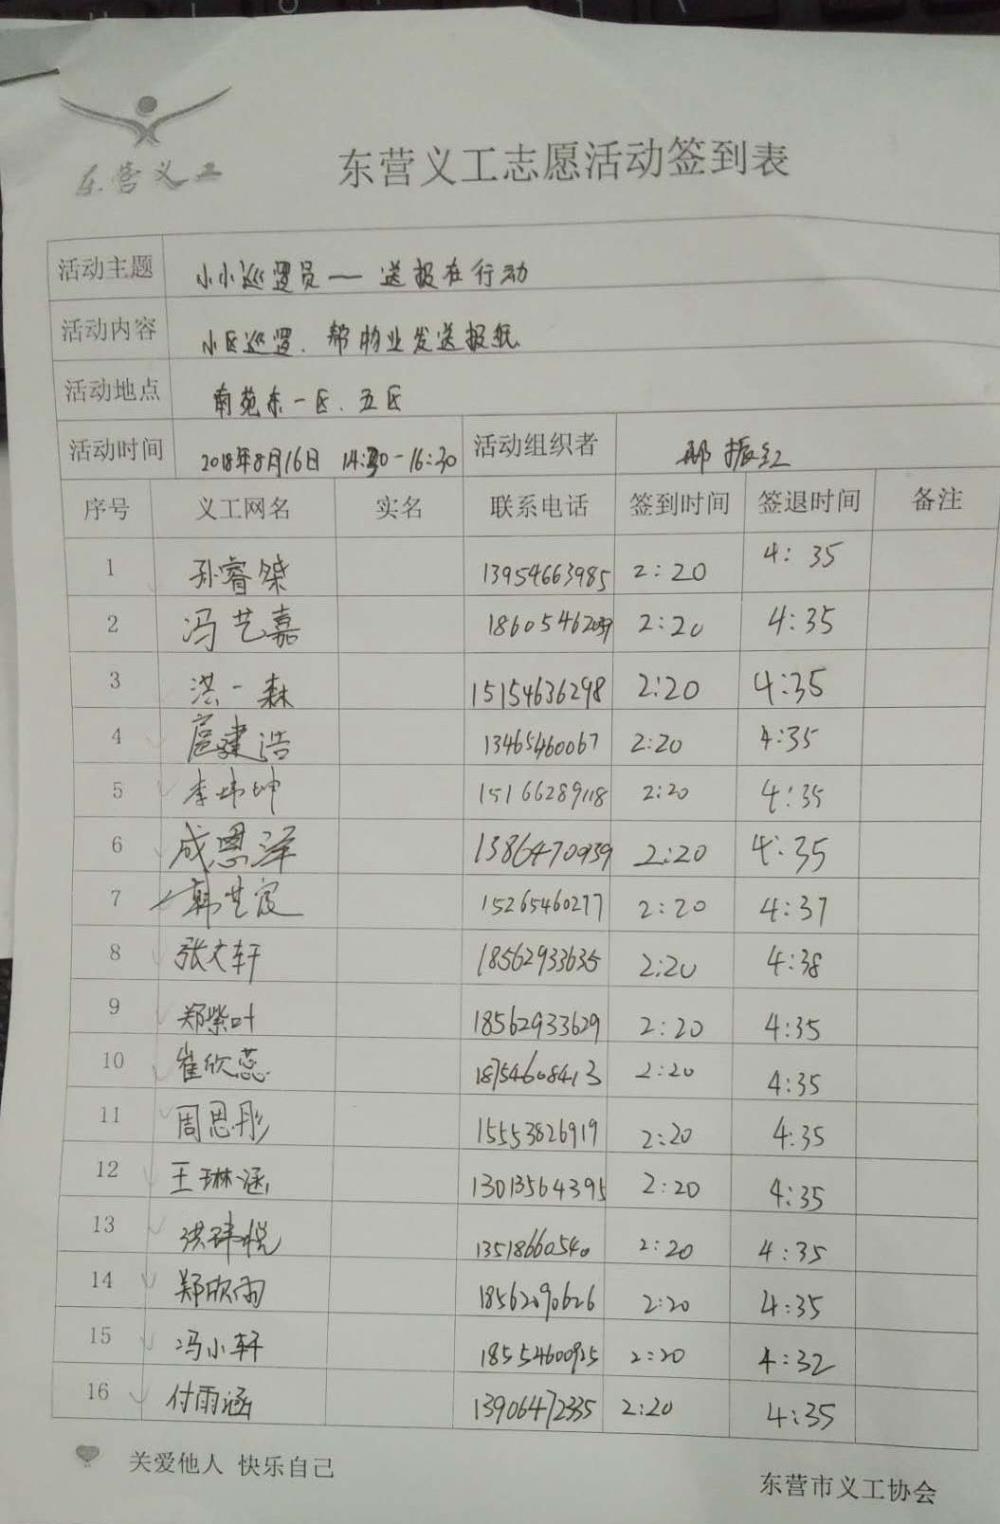 东营义工
东营义工志愿活动签到表
活动主题 小小巡逻员——送报在行动
活动内容 小区巡逻、帮物业发送报纸
活动地点 南苑东一区、五区
活动时间 2018年8月16日 14:30-16:30 活动组织者 邴振红
序号 义工网名 实名 联系电话 签到时间 签退时间 备注
1 孙睿燊 13954663985 2:20 4:35
2 冯艺嘉 18605462059 2:20 4:35
3 洪一森 15154636298 2:20 4:35
4 扈建浩 13465460067 2:20 4:35
5 李炜坤 15166289118 2:20 4:35
6 成恩泽 1386470939 2:20 4:35
7 韩艺霞 15265460277 2:20 4:37
8 张文轩 18562933635 2:20 4:38
9 郑紫叶 18562933629 2:20 4:35
10 崔欣蕊 18754608413 2:20 4:35
11 周思彤 15553826919 2:20 4:35
12 王琳涵 13013564395 2:20 4:35
13 洪玮悦 13518660540 2:20 4:35
14 郑欣雨 18562090626 2:20 4:35
15 冯小轩 18554600925 2:20 4:32
16 付雨涵 13906472335 2:20 4:35
关爱他人 快乐自己
东营市义工协会